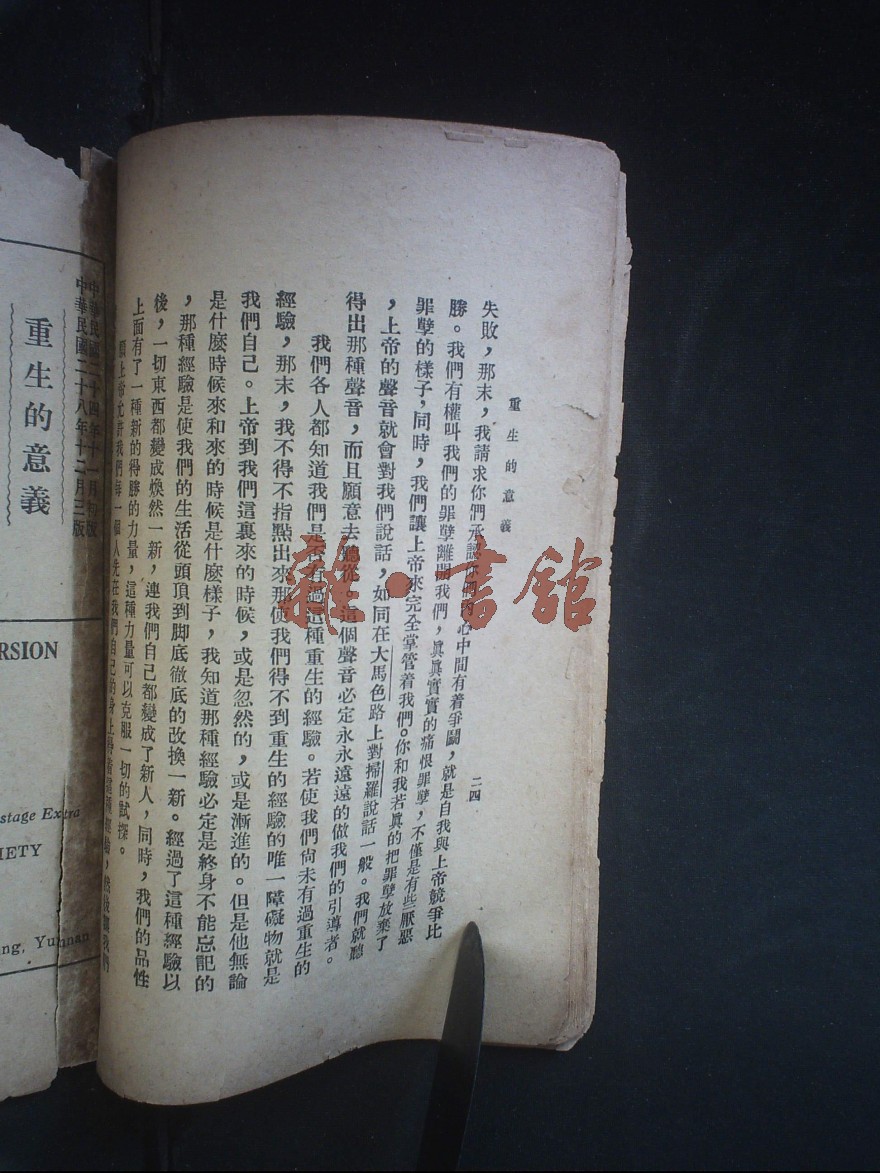 重生的意義
二四
失敗，那末，我請求你們承認你們內心中間有着爭鬪，就是自我與上帝競爭比
勝。我們有權叫我們的罪孽離開我們，眞眞實實的痛恨罪孽，不僅是有些厭惡
罪孽的樣子，同時，我們讓上帝來完全掌管着我們。你和我若眞的把罪孽放棄了
，上帝的聲音就會對我們說話，如同在大馬色路上對掃羅說話一般。我們就聽
得出那種聲音，而且願意去聽從。這個聲音必定永永遠遠的做我們的引導者。
我們各人都知道我們是否有過這種重生的經驗。若使我們尙未有過重生的
經驗，那末，我不得不指點出來那使我們得不到重生的經驗的唯一障礙物就是
我們自己。上帝到我們這裏來的時候，或是忽然的，或是漸進的。但是他無論
是什麼時候來和來的時候是什麼樣子，我知道那種經驗必定是終身不能忘記的
，那種經驗是使我們的生活從頭頂到脚底徹底的改換一新。經過了這種經驗以
後，一切東西都變成煥然一新，連我們自己都變成了新人，同時，我們的品性
上面有了一種新的得勝的力量，這種力量可以克服一切的試探。
願上帝允許我們每一個人先在我們自己的身上
中華民國二十四年十一月初版
中華民國二十八年十二月三版
重生的意義
RSION
stage Extra
IETY
ng, Yunnan
雜·書館